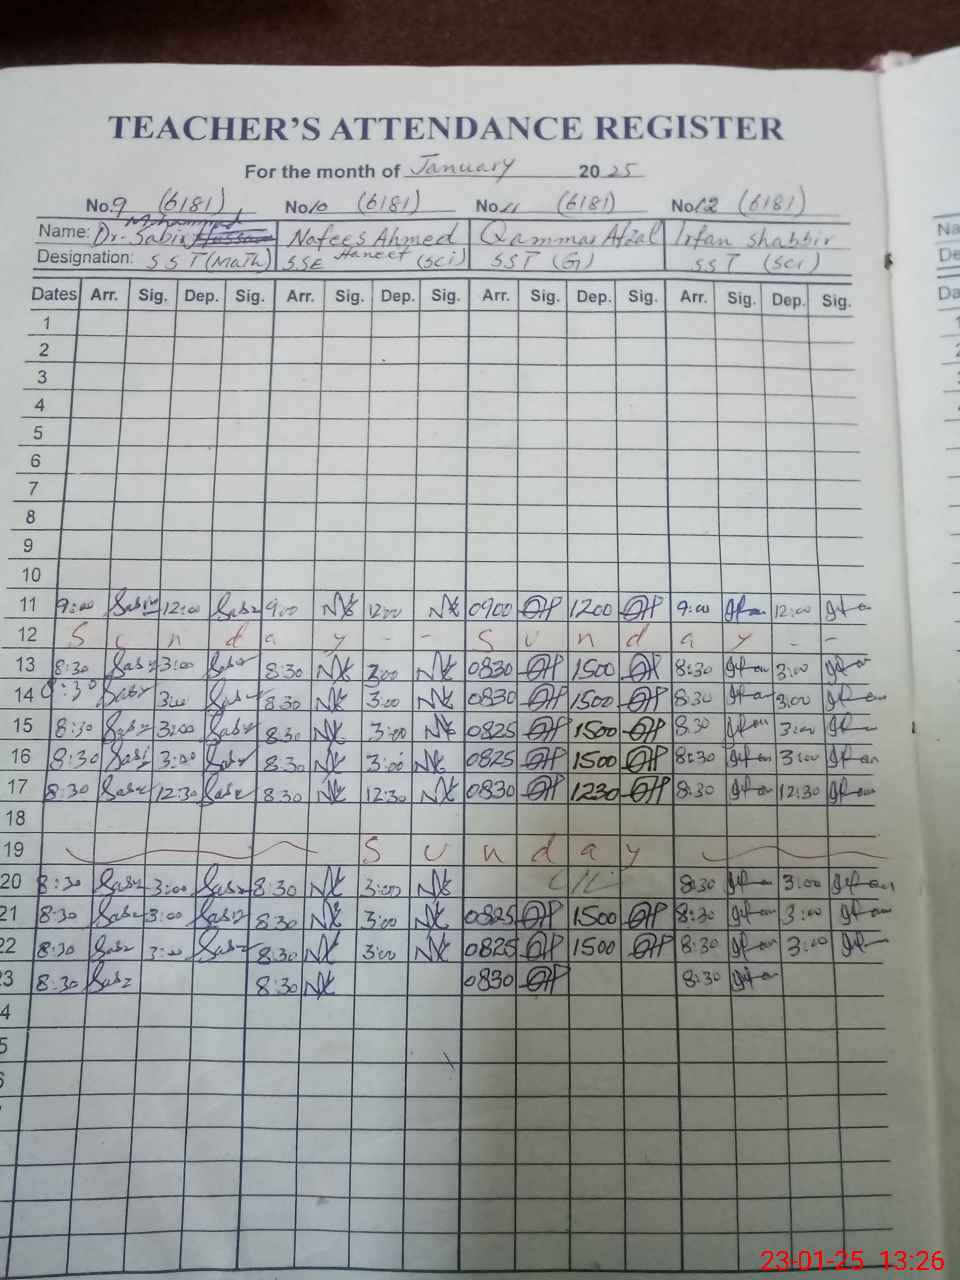 TEACHER'S ATTENDANCE REGISTER
For the month of January 2025
No.9 (6181) No10 (6181) No.11 (6181) No12 (6181)
Name: Dr. Muhammad Sabir Nafees Ahmed Qammar Afzal Irfan Shabbir
Designation: SST (Math) SSE Haneef (Sci) SST (G) SST (Sci)
Dates Arr. Sig. Dep. Sig. Arr. Sig. Dep. Sig. Arr. Sig. Dep. Sig. Arr. Sig. Dep. Sig.
1
2
3
4
5
6
7
8
9
10
11 9:00 Sabir 12:00 Sabir 9:00 NK 12:00 NK 0900 1200 9:00 Irfan 12:00 Irfan
12 S u n d a y - - S u n d a y - -
13 8:30 Sabir 3:00 Sabir 8:30 NK 3:00 NK 0830 1500 8:30 Irfan 3:00 Irfan
14 8:30 Sabir 3:00 Sabir 8:30 NK 3:00 NK 0830 1500 8:30 Irfan 3:00 Irfan
15 8:30 Sabir 3:00 Sabir 8:30 NK 3:00 NK 0825 1500 8:30 Irfan 3:00 Irfan
16 8:30 Sabir 3:00 Sabir 8:30 NK 3:00 NK 0825 1500 8:30 Irfan 3:00 Irfan
17 8:30 Sabir 12:30 Sabir 8:30 NK 12:30 NK 0830 1230 8:30 Irfan 12:30 Irfan
18
19 S u n d a y
20 8:30 Sabir 3:00 Sabir 8:30 NK 3:00 NK 8:30 Irfan 3:00 Irfan
21 8:30 Sabir 3:00 Sabir 8:30 NK 3:00 NK 0825 1500 8:30 Irfan 3:00 Irfan
22 8:30 Sabir 3:00 Sabir 8:30 NK 3:00 NK 0825 1500 8:30 Irfan 3:00 Irfan
23 8:30 Sabir 8:30 NK 0830 8:30 Irfan
4
5
6
Na
De
Da
23-01-25 13:26